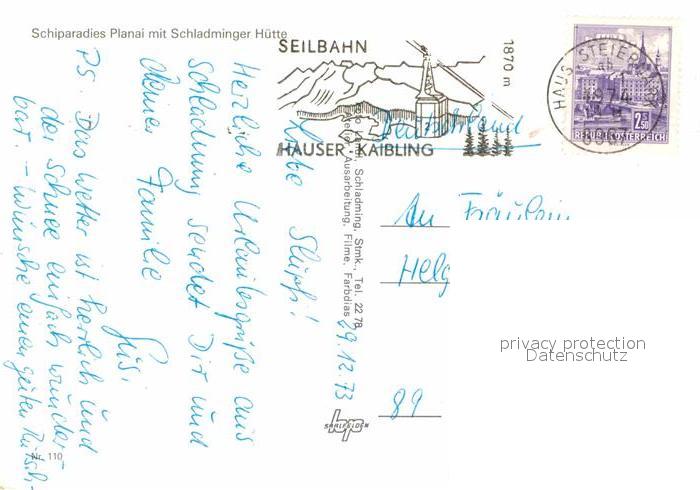 Schiparadies Planai mit Schladminger Hütte
SEILBAHN
1870 m
HAUSER KAIBLING
HAUS STEIERM
2.50
REPUBLIK ÖSTERREICH
29.12.73
Liebe
Herzliche Urlaubsgrüße aus
Schladming sendet Dir und
Deiner Familie
PS. Das Wetter ist herrlich und
der Schnee einfach wunder-
bar. - Wünsche einen guten Rutsch.
Schladming, Stmk., Tel. 22 78
Ausarbeitung, Filme, Farbdias
SAALFELDEN
Nr. 110
Deutschland
An Fräulein
Helg
89
privacy protection
Datenschutz